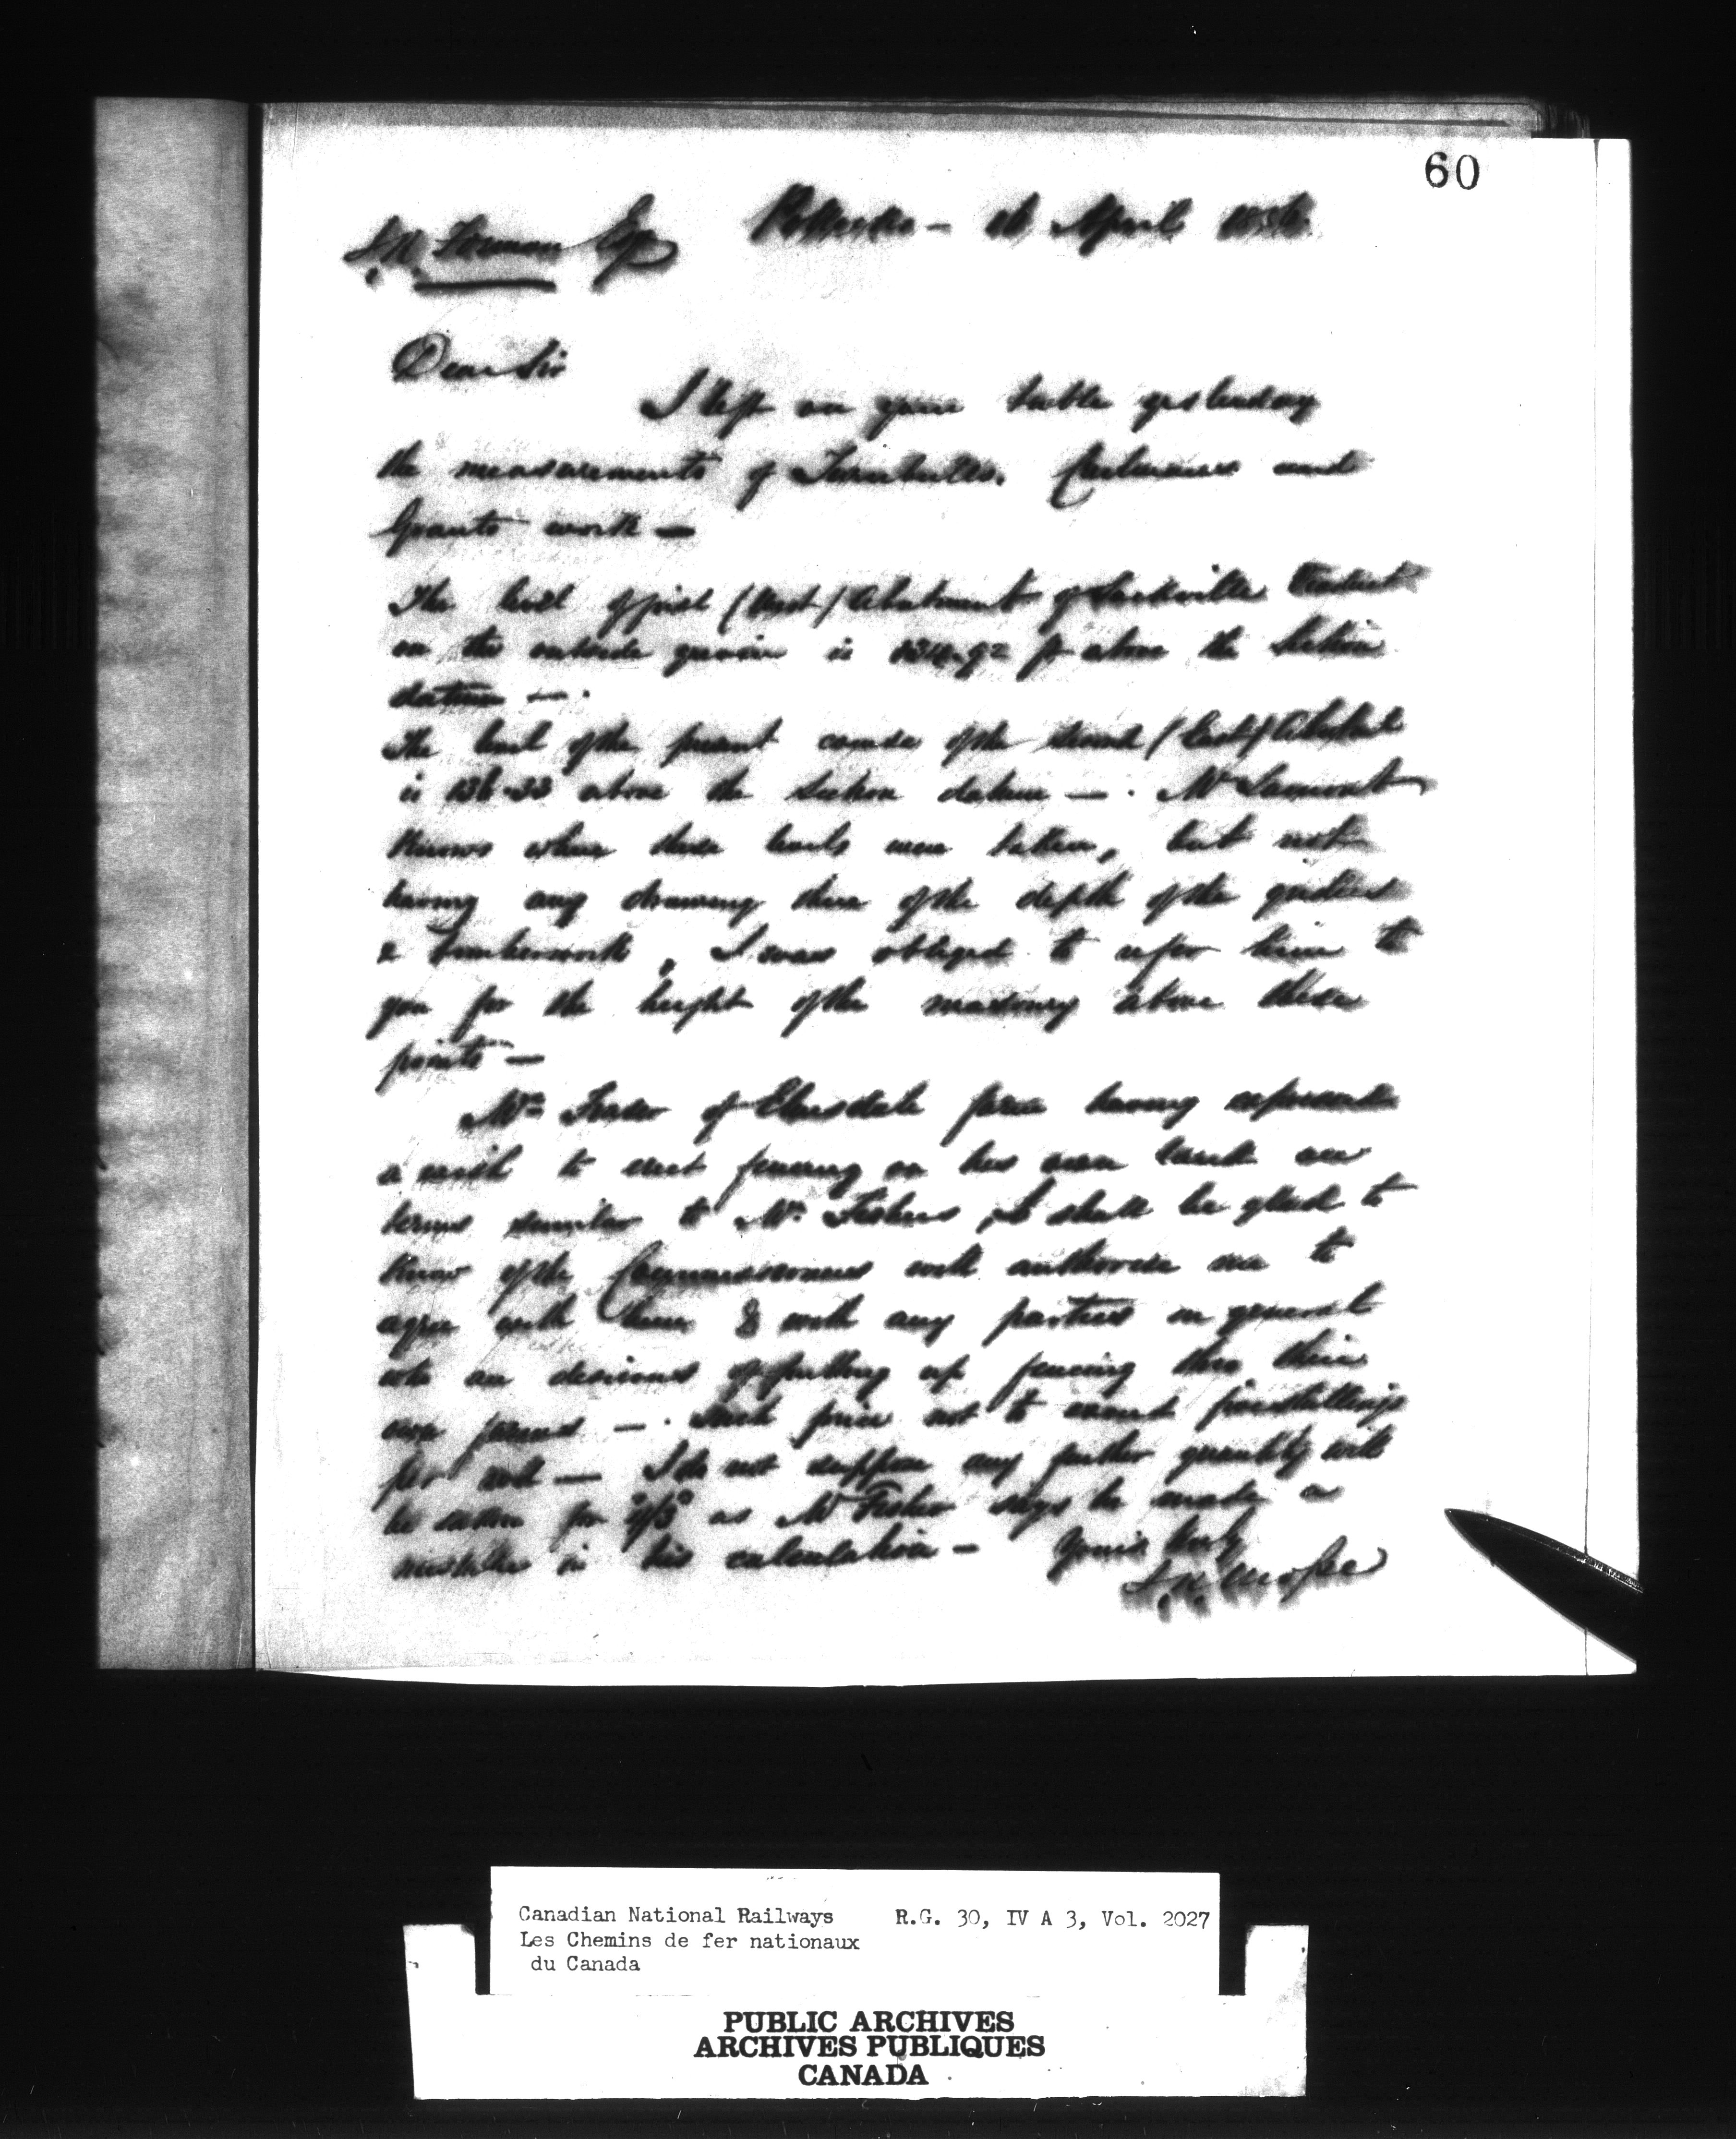 60
J.R. Forman Esq
16 April 1856
Dear Sir
I left on your table yesterday
the measurements of Turnbulls, and
Grants work —
The level of first (West) Abutment of Sackville Viaduct
on the outside is 134.92 ft above the Section
datum — .
The level of the present course of the second (East)
is 136.33 above the Section datum — . Mr Lamont
knows where these levels were taken, but not
having any drawing here of the depth of the girders
& timberwork, I was obliged to refer him to
you for the height of the masonry above these
points —
Mr. of Elmsdale having expressed
a wish to erect fencing on his own land on
terms similar to Mr. Fishers, I shall be glad to
know if the Commissioners will authorise me to
agree with him & with any parties in general
who are desirous of putting up fencing thro their
own farms — . Such price not to exceed shillings
per rod — I do not suppose any further quantity will
be taken for as Mr Fisher says he made a
mistake in his calculation — Yours truly
Canadian National Railways R.G. 30, IV A 3, Vol. 2027
Les Chemins de fer nationaux
du Canada
PUBLIC ARCHIVES
ARCHIVES PUBLIQUES
CANADA